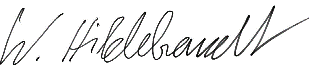 W. Hildebrandt